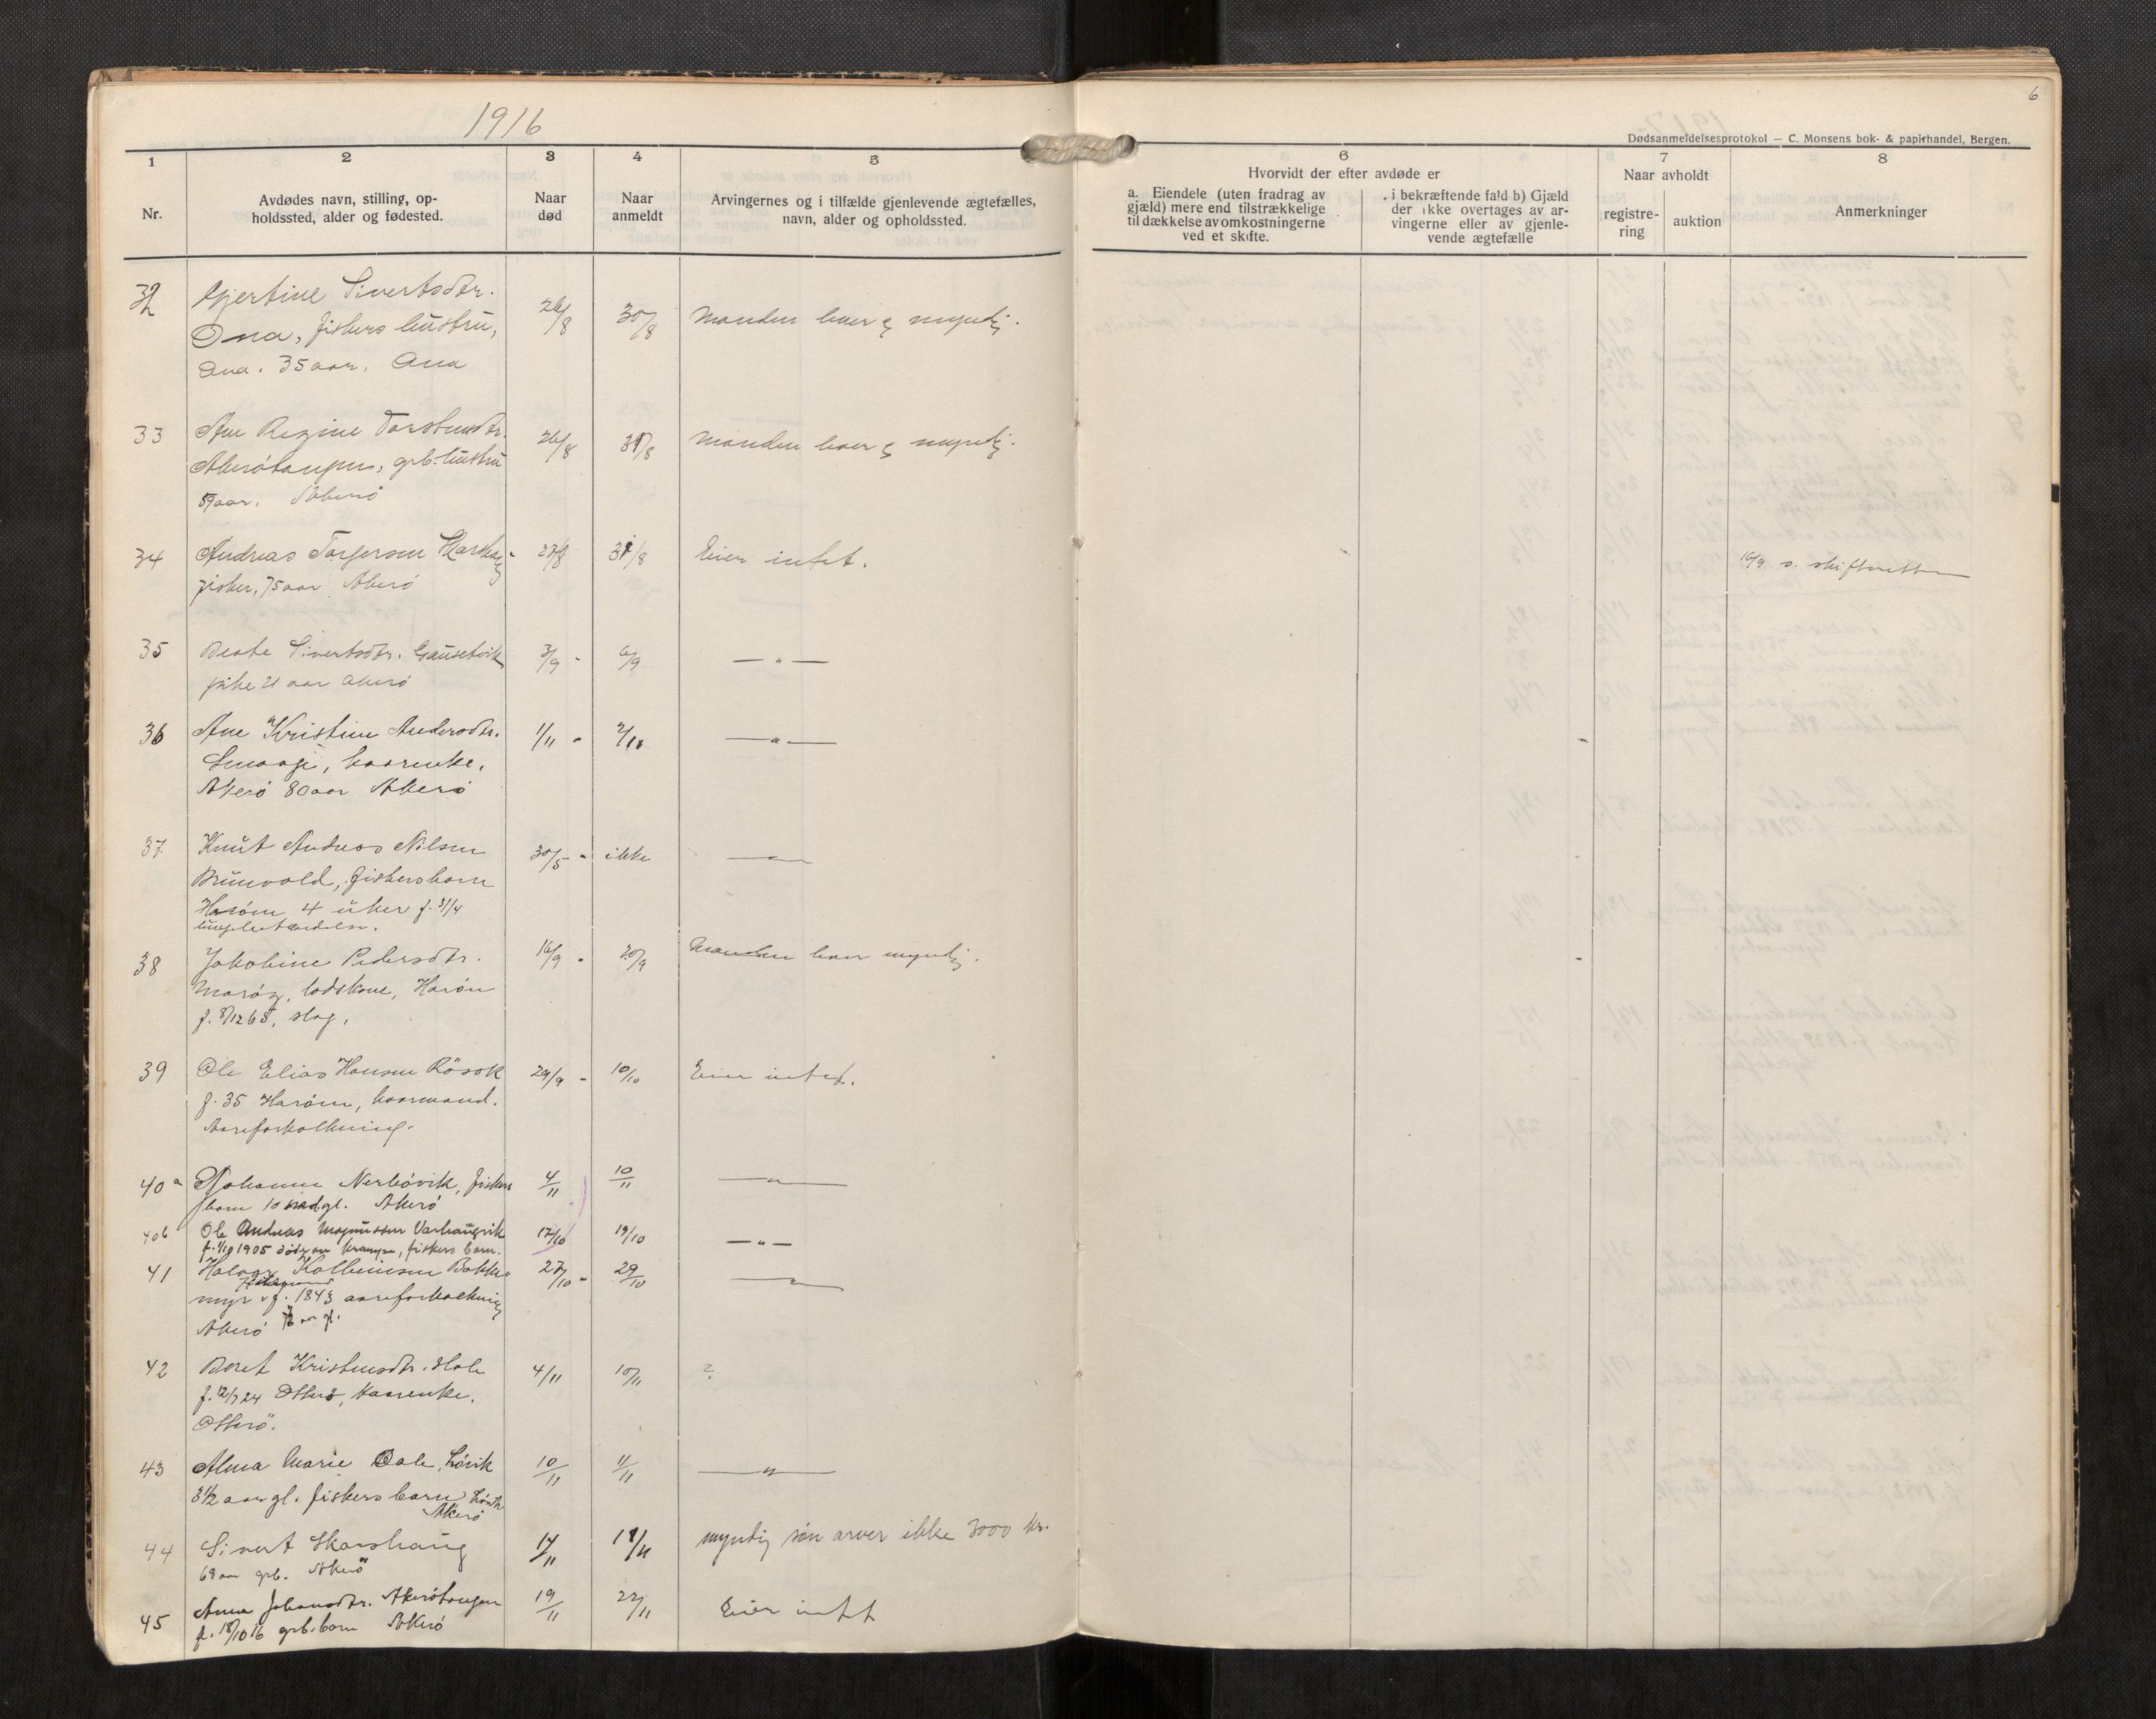 1916
6
Dødsanmeldelsesprotokol — C. Monsens bok- & papirhandel, Bergen.
1 2 3 4 5 6 7 8
Nr.
Avdødes navn, stilling, op-
holdssted, alder og fødested.
Naar
død
Naar
anmeldt
Arvingernes og i tilfælde gjenlevende ægtefælles,
navn, alder og opholdssted.
Hvorvidt der efter avdøde er
a. Eiendele (uten fradrag av
gjæld) mere end tilstrækkelige
til dækkelse av omkostningerne
ved et skifte.
i bekræftende fald b) Gjæld
der ikke overtages av ar-
vingerne eller av gjenle-
vende ægtefælle
Naar avholdt
registre-
ring
auktion
Anmerkninger
32 Gjertine Sivertsdtr. 26/8 30/8 Manden lever & myndig.
Ona, fiskers hustru,
Ona. 35 aar. Ona
33 Ane Regine Torstensdtr. 26/8 31/8 Manden lever & myndig.
Akerötangen, grb. hustru
59 aar. Akerö
34 Andreas Torgersen 27/8 31/8 Eier intet. 16/9 s. skifteretten
fisker, 75 aar Akerö
35 Beate Sivertsdtr. Gausetvik 3/9 - 6/9 — " —
pike 21 aar Akerö
36 Ane Kristine Andersdtr. 1/11 - 2/11 — " —
Smaage, kaarenke.
Akerö 80 aar Akerö
37 Knut Andreas Nilsen 30/5 - ikke — " —
Brunvold, fiskersbarn
Haröen 4 uker f. 31/4
lungebetændelse.
38 Jakobine Pedersdtr. 16/9 - 20/9 Manden lever myndig.
Maröy, lodskone, Haröen
f. 8/12 68, slag.
39 Ole Elias Hansen Rösok 29/9 - 10/10 Eier intet.
f. 35 Haröen, kaarmand.
Aareforkalkning.
40a Johanne Nerbövik, fiskers 4/11 10/11 — " —
barn 10 mdgl. Akerö
40b Ole Andreas Magnussen Varhaugvik 17/10 19/10 — " —
f. 1/10 1905 död av krampe, fiskers barn.
41 Halvor Kolbeinsen Bakke 27/10 - 29/10 — " —
myr f. 1843 aareforkalkning
Akerö
42 Beret Kristensdtr. Hole 4/11 10/11 ?
f. 12/7 24 Otterö, kaarenke.
Otterö.
43 Alma Marie Dale, Lövik 10/11 11/11 — " —
3 1/2 aar gl. fiskers barn Lövik
Akerö
44 Sivert Skarshaug 17/11 18/11 myndig sön arver ikke 3000 kr.
68 aar grb. Akerö
45 Anna Johansdtr. Akerötangen 19/11 22/11 Eier intet
f. 18/10 16 grb. barn Akerö